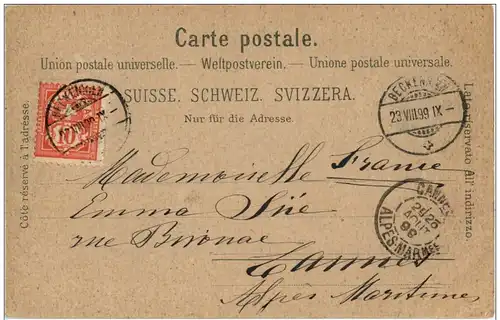 Carte postale.
Union postale universelle. — Weltpostverein. — Unione postale universale.
SUISSE. SCHWEIZ. SVIZZERA.
Nur für die Adresse.
Côté réservé à l'adresse.
Lato riservato all'indirizzo.
10
BECKENRIED
23 VIII 99 IX
CANNES
ALPES-MARMES
Mademoiselle France
Emma Süe
rue Bivouac
Cannes
Alpes Maritimes